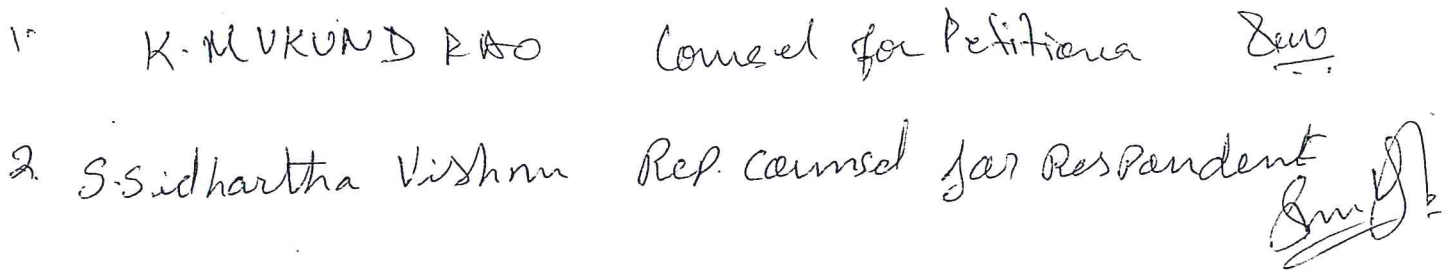 1. K. MUKUND RAO Counsel for Petitioner
2. S. Sidhartha Vishnu Rep. Counsel for Respondent